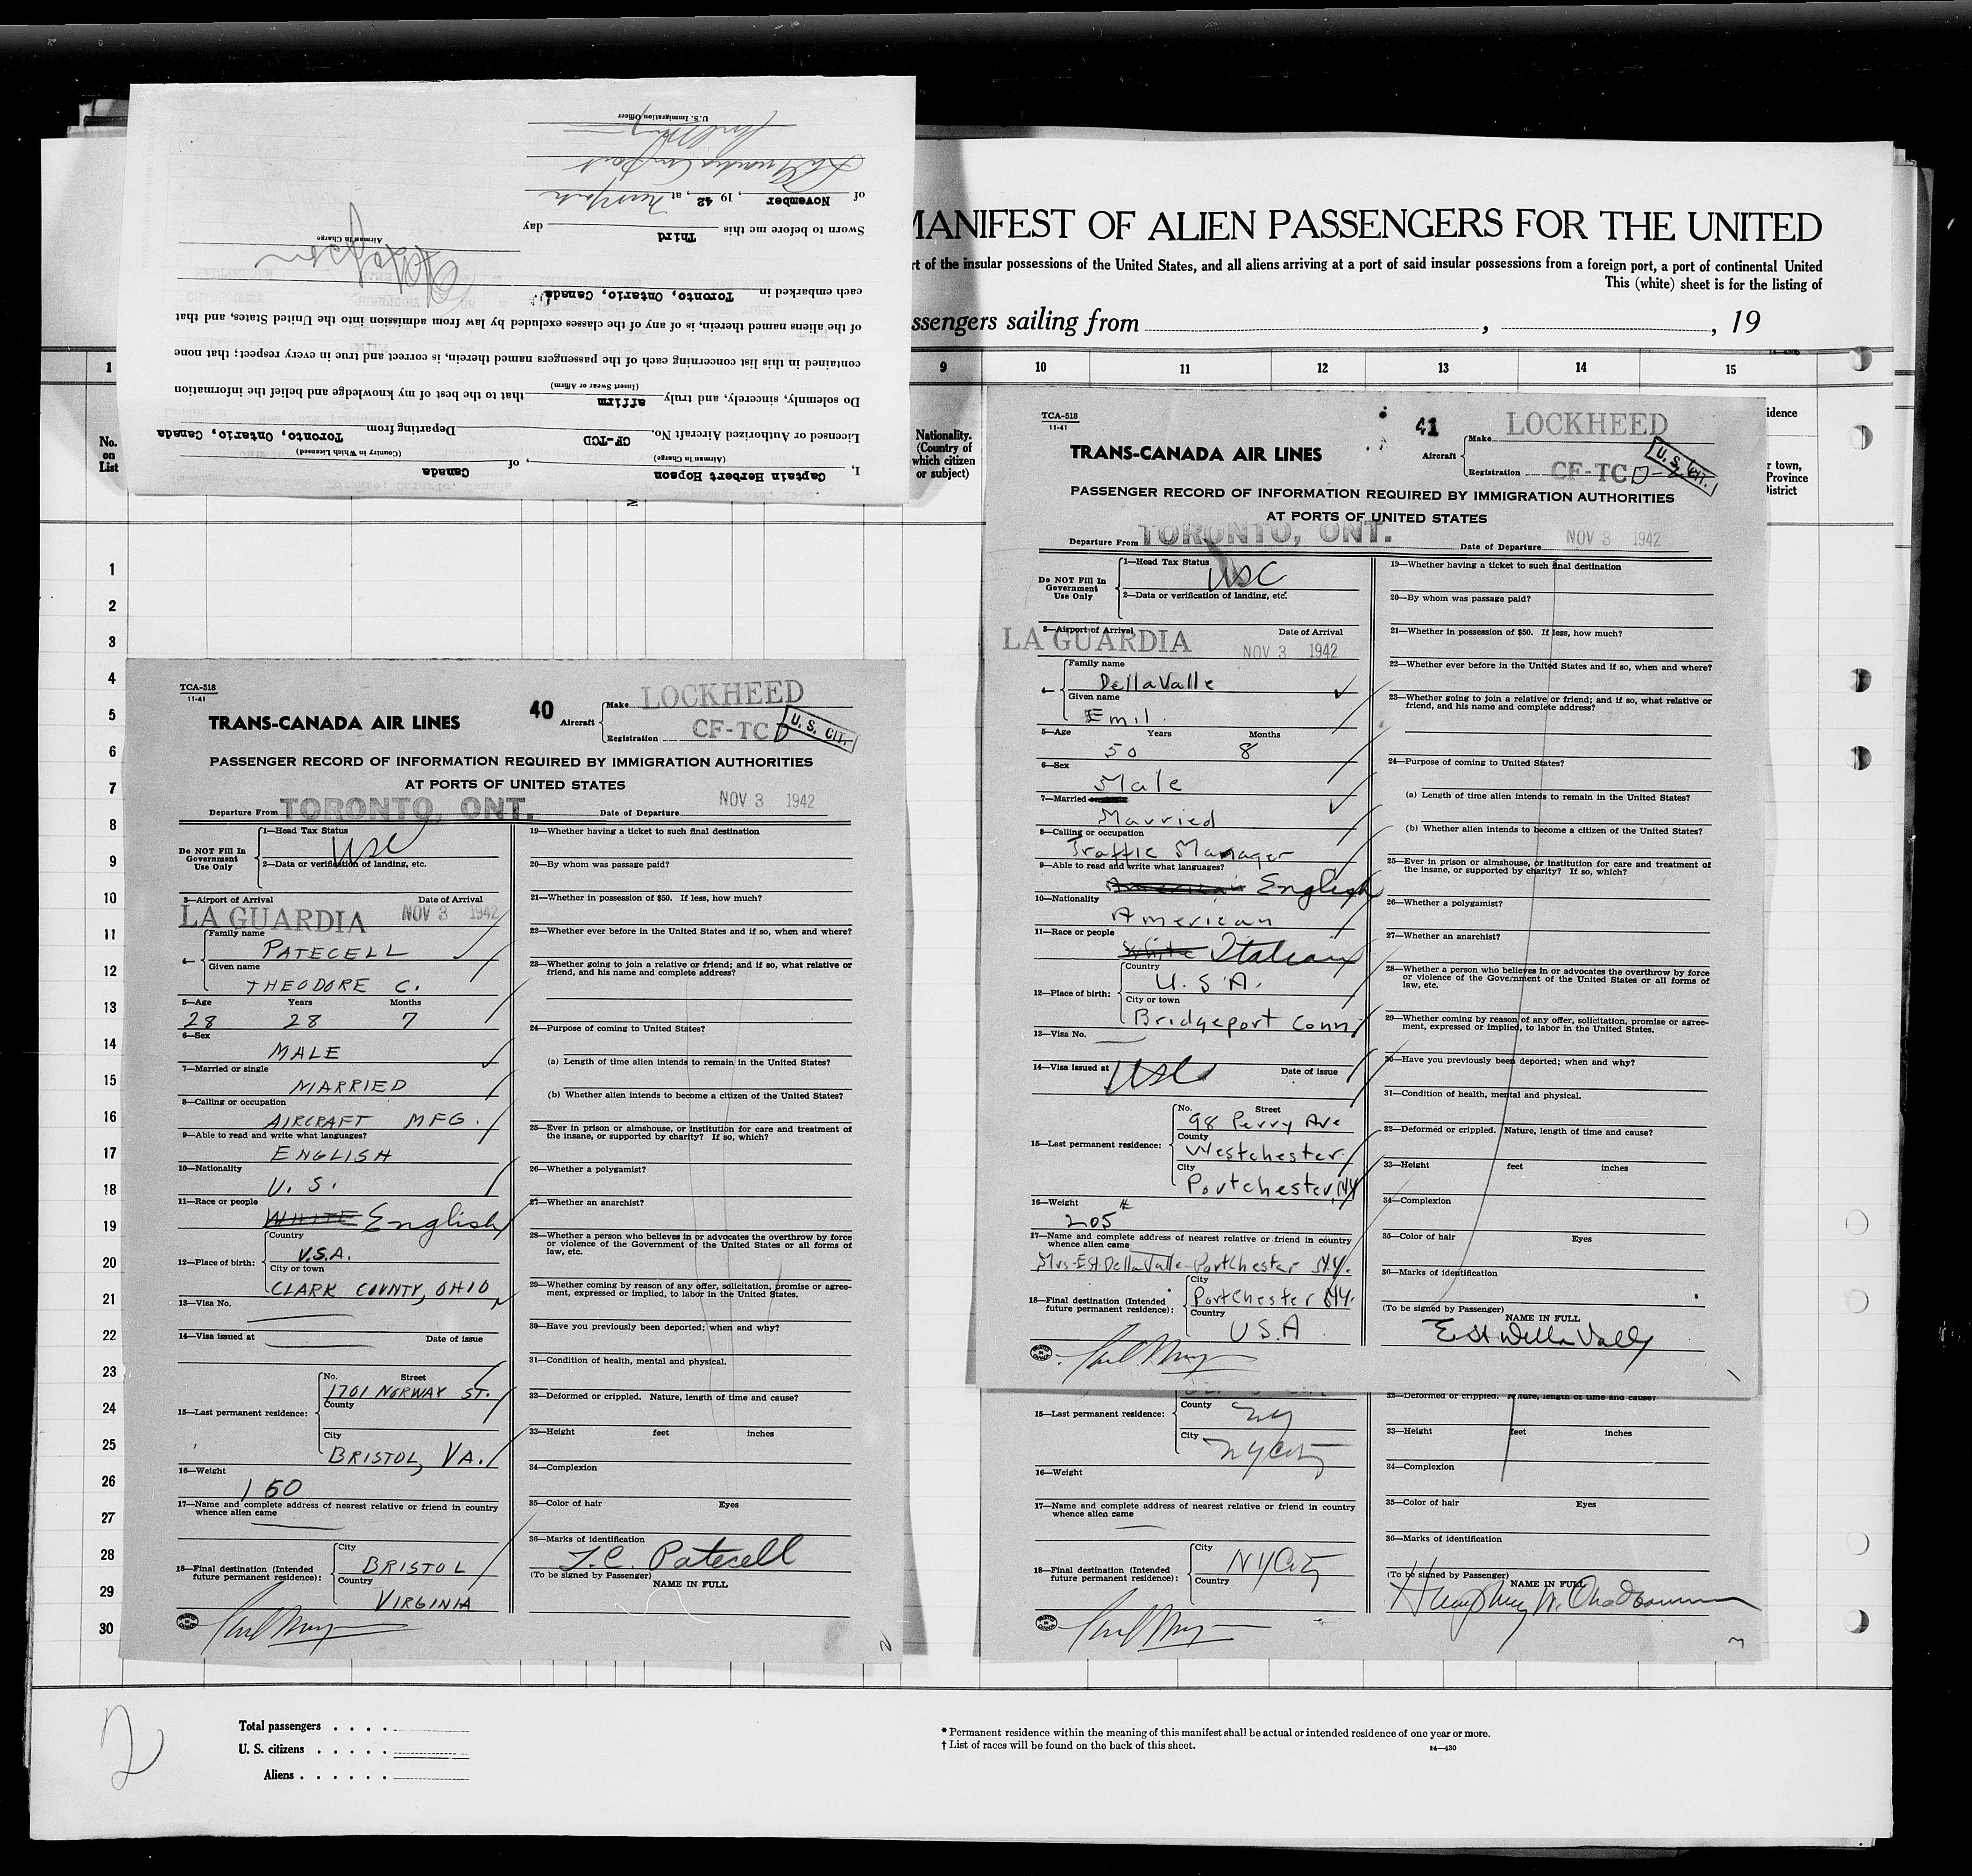 I, Captain Herbert Hopson, of Canada
(Airman in Charge) (Country in Which Licensed)
Licensed or Authorized Aircraft No. CF-TCD Departing from Toronto, Ontario, Canada
Do solemnly, sincerely, and truly affirm that to the best of my knowledge and belief the information
(Insert Swear or Affirm)
contained in this list concerning each of the passengers named therein, is correct and true in every respect; that none
of the aliens named therein, is of any of the classes excluded by law from admission into the United States, and that
each embarked in Toronto, Ontario, Canada
Airman in Charge
Sworn to before me this Third day
of November, 19 42, at New York
U.S. Immigration Officer
MANIFEST OF ALIEN PASSENGERS FOR THE UNITED
rt of the insular possessions of the United States, and all aliens arriving at a port of said insular possessions from a foreign port, a port of continental United
This (white) sheet is for the listing of
ssengers sailing from , , 19
1 9 10 11 12 13 14 15
No. on List
Nationality. (Country of which citizen or subject)
idence
r town, Province District
1
2
3
4
5
6
7
8
9
10
11
12
13
14
15
16
17
18
19
20
21
22
23
24
25
26
27
28
29
30
TCA-518
11-41
40
TRANS-CANADA AIR LINES
Aircraft
Make LOCKHEED
Registration CF-TCD
U. S. CIT.
PASSENGER RECORD OF INFORMATION REQUIRED BY IMMIGRATION AUTHORITIES
AT PORTS OF UNITED STATES
Departure From TORONTO, ONT. Date of Departure NOV 3 1942
Do NOT Fill In Government Use Only
1—Head Tax Status USC
2—Data or verification of landing, etc.
3—Airport of Arrival Date of Arrival
LA GUARDIA NOV 3 1942
4— Family name
PATECELL
Given name
THEODORE C.
5—Age Years Months
28 28 7
6—Sex
MALE
7—Married or single
MARRIED
8—Calling or occupation
AIRCRAFT MFG.
9—Able to read and write what languages?
ENGLISH
10—Nationality
U. S.
11—Race or people
WHITE English
12—Place of birth:
Country
U.S.A.
City or town
CLARK COUNTY, OHIO
13—Visa No.
14—Visa issued at Date of issue
15—Last permanent residence:
No. Street
1701 NORWAY ST.
County
City
BRISTOL, VA.
16—Weight
150
17—Name and complete address of nearest relative or friend in country whence alien came
18—Final destination (Intended future permanent residence):
City
BRISTOL
Country
VIRGINIA
19—Whether having a ticket to such final destination
20—By whom was passage paid?
21—Whether in possession of $50. If less, how much?
22—Whether ever before in the United States and if so, when and where?
23—Whether going to join a relative or friend; and if so, what relative or friend, and his name and complete address?
24—Purpose of coming to United States?
(a) Length of time alien intends to remain in the United States?
(b) Whether alien intends to become a citizen of the United States?
25—Ever in prison or almshouse, or institution for care and treatment of the insane, or supported by charity? If so, which?
26—Whether a polygamist?
27—Whether an anarchist?
28—Whether a person who believes in or advocates the overthrow by force or violence of the Government of the United States or all forms of law, etc.
29—Whether coming by reason of any offer, solicitation, promise or agreement, expressed or implied, to labor in the United States.
30—Have you previously been deported; when and why?
31—Condition of health, mental and physical.
32—Deformed or crippled. Nature, length of time and cause?
33—Height feet inches
34—Complexion
35—Color of hair Eyes
36—Marks of identification
T.C. Patecell
(To be signed by Passenger)
NAME IN FULL
TCA-518
11-41
41
TRANS-CANADA AIR LINES
Aircraft
Make LOCKHEED
Registration CF-TCD
U. S. CIT.
PASSENGER RECORD OF INFORMATION REQUIRED BY IMMIGRATION AUTHORITIES
AT PORTS OF UNITED STATES
Departure From TORONTO, ONT. Date of Departure NOV 3 1942
Do NOT Fill In Government Use Only
1—Head Tax Status USC
2—Data or verification of landing, etc.
3—Airport of Arrival Date of Arrival
LA GUARDIA NOV 3 1942
4— Family name
DellaValle
Given name
Emil
5—Age Years Months
50 8
6—Sex
Male
7—Married
Married
8—Calling or occupation
Traffic Manager
9—Able to read and write what languages?
American English
10—Nationality
American
11—Race or people
White Italian
12—Place of birth:
Country
U.S.A.
City or town
Bridgeport Conn
13—Visa No.
14—Visa issued at USC Date of issue
15—Last permanent residence:
No. Street
98 Perry Ave
County
Westchester
City
Portchester, NY
16—Weight
205 #
17—Name and complete address of nearest relative or friend in country whence alien came
Mrs. E.H. DellaValle - Portchester N.Y.
18—Final destination (Intended future permanent residence):
City
Portchester N.Y.
Country
USA
19—Whether having a ticket to such final destination
20—By whom was passage paid?
21—Whether in possession of $50. If less, how much?
22—Whether ever before in the United States and if so, when and where?
23—Whether going to join a relative or friend; and if so, what relative or friend, and his name and complete address?
24—Purpose of coming to United States?
(a) Length of time alien intends to remain in the United States?
(b) Whether alien intends to become a citizen of the United States?
25—Ever in prison or almshouse, or institution for care and treatment of the insane, or supported by charity? If so, which?
26—Whether a polygamist?
27—Whether an anarchist?
28—Whether a person who believes in or advocates the overthrow by force or violence of the Government of the United States or all forms of law, etc.
29—Whether coming by reason of any offer, solicitation, promise or agreement, expressed or implied, to labor in the United States.
30—Have you previously been deported; when and why?
31—Condition of health, mental and physical.
32—Deformed or crippled. Nature, length of time and cause?
33—Height feet inches
34—Complexion
35—Color of hair Eyes
36—Marks of identification
(To be signed by Passenger)
NAME IN FULL
E H DellaValle
15—Last permanent residence:
County
NY
City
NYCity
16—Weight
17—Name and complete address of nearest relative or friend in country whence alien came
18—Final destination (Intended future permanent residence):
City
NYCity
Country
32—Deformed or crippled. Nature, length of time and cause?
33—Height feet inches
34—Complexion
35—Color of hair Eyes
36—Marks of identification
(To be signed by Passenger)
NAME IN FULL
2
Total passengers
U. S. citizens
Aliens
* Permanent residence within the meaning of this manifest shall be actual or intended residence of one year or more.
† List of races will be found on the back of this sheet. 14—430